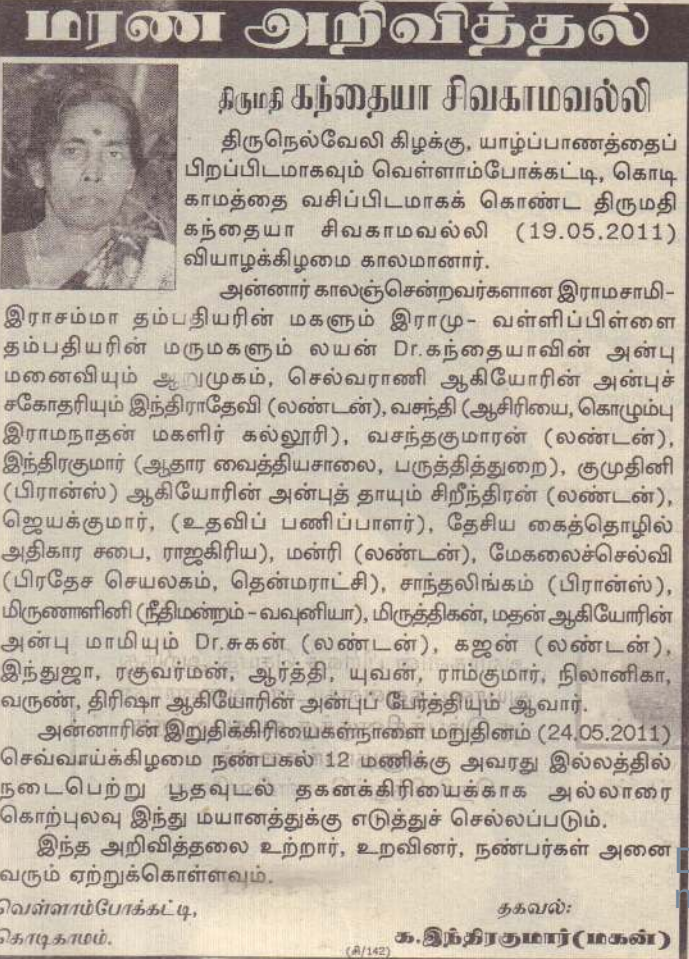 மரண அறிவித்தல்
திருமதி கந்தையா சிவகாமவல்லி
திருநெல்வேலி கிழக்கு, யாழ்ப்பாணத்தைப்
பிறப்பிடமாகவும் வெள்ளாம்போக்கட்டி, கொடி
காமத்தை வசிப்பிடமாகக் கொண்ட திருமதி
கந்தையா சிவகாமவல்லி (19.05.2011)
வியாழக்கிழமை காலமானார்.
அன்னார் காலஞ்சென்றவர்களான இராமசாமி-
இராசம்மா தம்பதியரின் மகளும் இராமு- வள்ளிப்பிள்ளை
தம்பதியரின் மருமகளும் லயன் Dr.கந்தையாவின் அன்பு
மனைவியும் ஆறுமுகம், செல்வராணி ஆகியோரின் அன்புச்
சகோதரியும் இந்திராதேவி (லண்டன்), வசந்தி (ஆசிரியை, கொழும்பு
இராமநாதன் மகளிர் கல்லூரி), வசந்தகுமாரன் (லண்டன்),
இந்திரகுமார் (ஆதார வைத்தியசாலை, பருத்தித்துறை), குமுதினி
(பிரான்ஸ்) ஆகியோரின் அன்புத் தாயும் சிறீந்திரன் (லண்டன்),
ஜெயக்குமார், (உதவிப் பணிப்பாளர்), தேசிய கைத்தொழில்
அதிகார சபை, ராஜகிரிய), மன்ரி (லண்டன்), மேகலைச்செல்வி
(பிரதேச செயலகம், தென்மராட்சி), சாந்தலிங்கம் (பிரான்ஸ்),
மிருணாளினி (நீதிமன்றம் -வவுனியா), மிருத்திகன், மதன் ஆகியோரின்
அன்பு மாமியும் Dr.சுகன் (லண்டன்), கஜன் (லண்டன்),
இந்துஜா, ரகுவர்மன், ஆர்த்தி, யுவன், ராம்குமார், நிலானிகா,
வருண், திரிஷா ஆகியோரின் அன்புப் பேர்த்தியும் ஆவார்.
அன்னாரின் இறுதிக்கிரியைகள்நாளை மறுதினம் (24.05.2011)
செவ்வாய்க்கிழமை நண்பகல் 12 மணிக்கு அவரது இல்லத்தில்
நடைபெற்று பூதவுடல் தகனக்கிரியைக்காக அல்லாரை
கொற்புலவு இந்து மயானத்துக்கு எடுத்துச் செல்லப்படும்.
இந்த அறிவித்தலை உற்றார், உறவினர், நண்பர்கள் அனை
வரும் ஏற்றுக்கொள்ளவும்.
வெள்ளாம்போக்கட்டி,
கொடிகாமம்.
தகவல்:
க.இந்திரகுமார்(மகன்)
(சி/142)